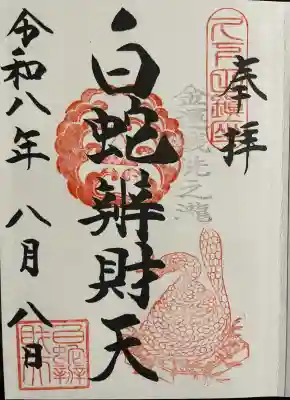 奉拝
金運銭洗之瀧
白蛇辨財天
令和八年 八月 八日
白蛇辨
財天